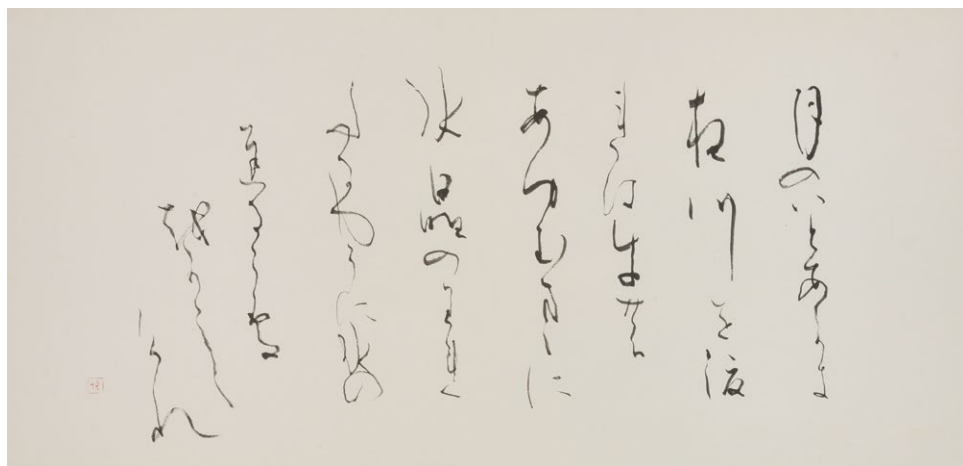 月のいとあかき
夜川を渡
れは牛の
あゆむまゝに
水晶のわれ
たるやうに水の
ちりたるこそ
をかし
けれ